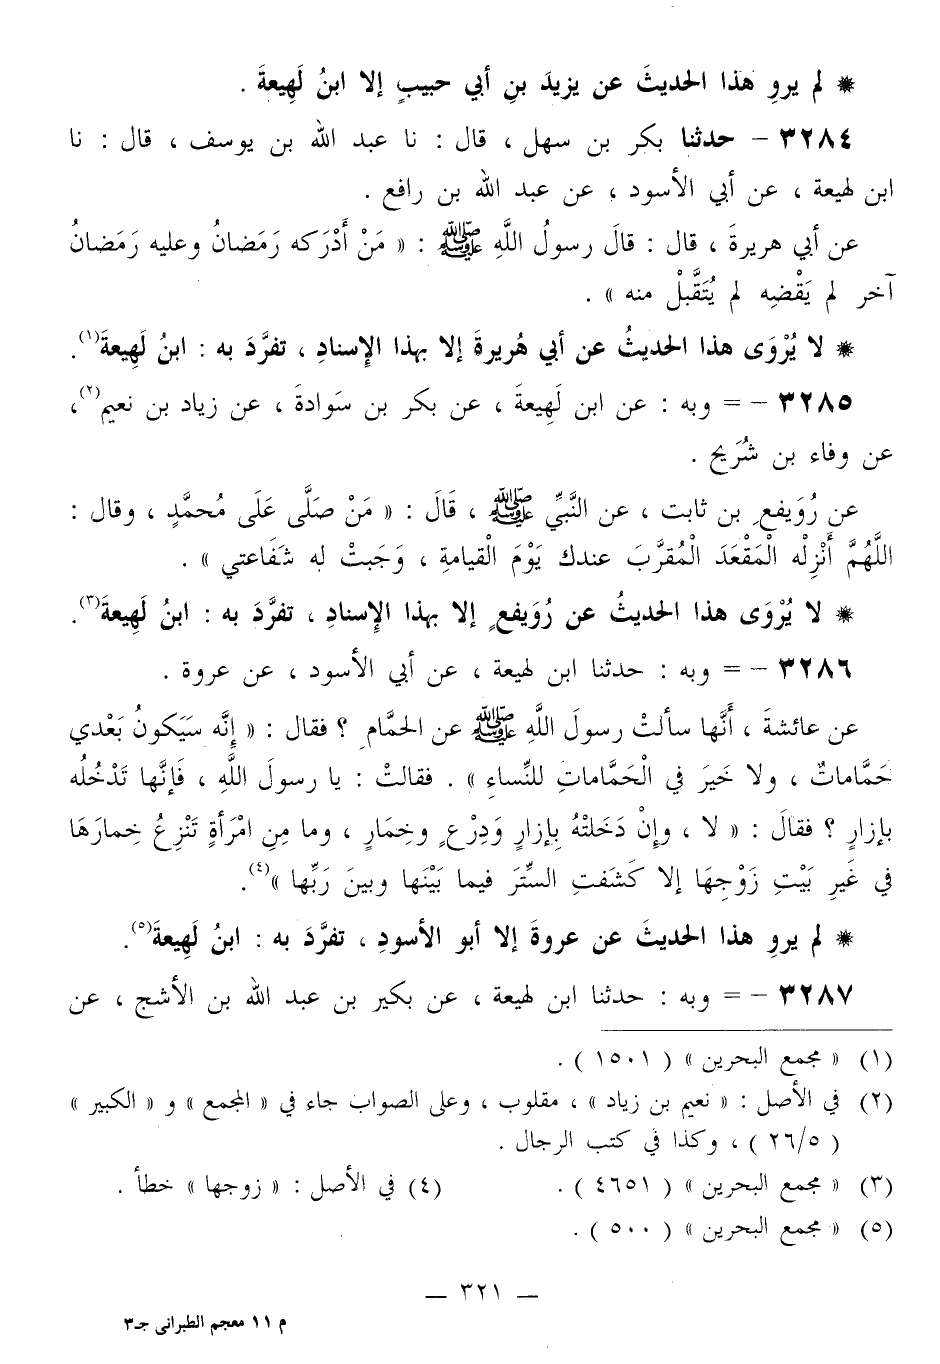 * لم يروِ هذا الحديثَ عن يزيدَ بنِ أبي حبيبٍ إلا ابنُ لَهِيعةَ .
٣٢٨٤ – حدثنا بكر بن سهل ، قال : نا عبد الله بن يوسف ، قال : نا
ابن لهيعة ، عن أبي الأسود ، عن عبد الله بن رافع .
عن أبي هريرةَ ، قال : قالَ رسولُ اللَّهِ ﷺ : « مَنْ أَدْرَكه رَمَضانُ وعليه رَمَضانُ
آخر لم يَقْضِه لم يُتَقَّبلْ منه » .
* لا يُرْوَى هذا الحديثُ عن أبي هُريرةَ إلا بهذا الإِسنادِ ، تفرَّدَ به : ابنُ لَهِيعةَ(١).
٣٢٨٥ – = وبه : عن ابن لَهِيعةَ ، عن بكر بن سَوادةَ ، عن زياد بن نعيم(٢)،
عن وفاء بن شُرَيح .
عن رُوَيفعِ بن ثابت ، عن النَّبيِّ ﷺ ، قَالَ : « مَنْ صَلَّى عَلَى مُحمَّدٍ ، وقال :
اللَّهُمَّ أَنْزِلْه الْمَقْعَدَ الْمُقرَّبَ عندك يَوْمَ الْقيامةِ ، وَجَبتْ له شَفَاعتي » .
* لا يُرْوَى هذا الحديثُ عن رُوَيفعٍ إلا بهذا الإِسنادِ ، تفرَّدَ به : ابنُ لَهِيعةَ(٣).
٣٢٨٦ – = وبه : حدثنا ابن لهيعة ، عن أبي الأسود ، عن عروة .
عن عائشةَ ، أَنَّها سألتْ رسولَ اللَّهِ ﷺ عن الحمَّامِ ؟ فقال : « إِنَّه سَيَكونُ بَعْدي
حَمَّاماتٌ ، ولا خَيرَ في الْحَمَّاماتِ للنِّساءِ » . فقالتْ : يا رسولَ اللَّهِ ، فَإنَّها تَدْخُلُه
بإزارٍ ؟ فقالَ : « لا ، وإنْ دَخَلتْهُ بِإزارٍ وَدِرْعٍ وخِمَارٍ ، وما مِنِ امْرَأةٍ تَنْزِعُ خِمارَهَا
في غَيرِ بَيْتِ زَوْجِهَا إلا كَشَفتِ السِّترَ فيما بَيْنَها وبينَ رَبِّها »(٤).
* لم يروِ هذا الحديثَ عن عروةَ إلا أبو الأسودِ ، تفرَّدَ به : ابنُ لَهِيعةَ(٥).
٣٢٨٧ – = وبه : حدثنا ابن لهيعة ، عن بكير بن عبد الله بن الأشج ، عن
(١) « مجمع البحرين » ( ١٥٠١ ) .
(٢) في الأصل : « نعيم بن زياد » ، مقلوب ، وعلى الصواب جاء في « المجمع » و « الكبير »
( ٢٦/٥ ) ، وكذا في كتب الرجال .
(٣) « مجمع البحرين » ( ٤٦٥١ ) . (٤) في الأصل : « زوجها » خطأ .
(٥) « مجمع البحرين » ( ٥٠٠ ) .
– ٣٢١ –
م ١١ معجم الطبرانى جـ٣